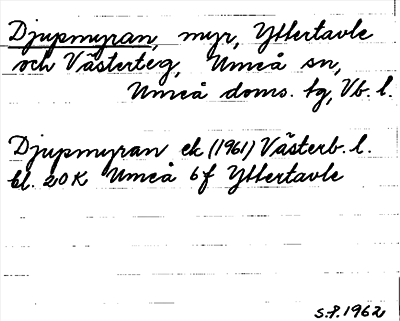 Djupmyran, myr, Yttertavle
och Västerteg, Umeå sn,
Umeå doms. tg, Vb. l.
Djupmyran ek (1961) Västerb. l.
bl. 20 K Umeå 6 f Yttertavle
S.F. 1962